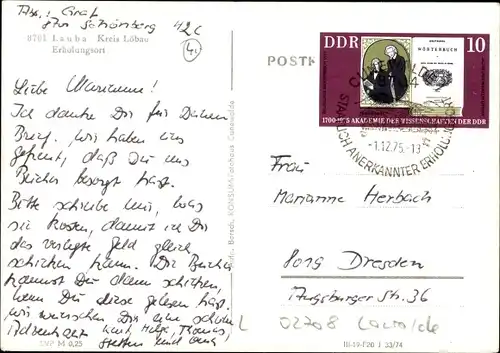 Abs.: Graf
42c
zur Schönberg
8701 Lauba Kreis Löbau
Erholungsort
4.
Liebe Marianne!
Ich danke Dir für Deinen
Brief. Wir haben uns
gefreut, daß Du uns
Bücher besorgt hast.
Bitte schreibe mir, was
sie kosten, damit ich Dir
das verlegte Geld gleich
schicken kann. Die Bücher
kannst Du dann schicken,
wenn Du diese gelesen hast.
Wir wünschen Dir eine schöne
Adventszeit Helge, Thomas,
Steffen und
EVP M 0,25
KONSUM
POSTK
DDR
WÖRTERBUCH
10
1700-1975 AKADEMIE DES WISSENSCHAFTEN DER DDR
STAATLICH ANERKANNTER ERHOLUNGSORT
-1.12.75.-13
Frau
Marianne Herbach
8019 Dresden
Augsburger Str. 36
02708 Lawalde
III-19-F20 J 33/74